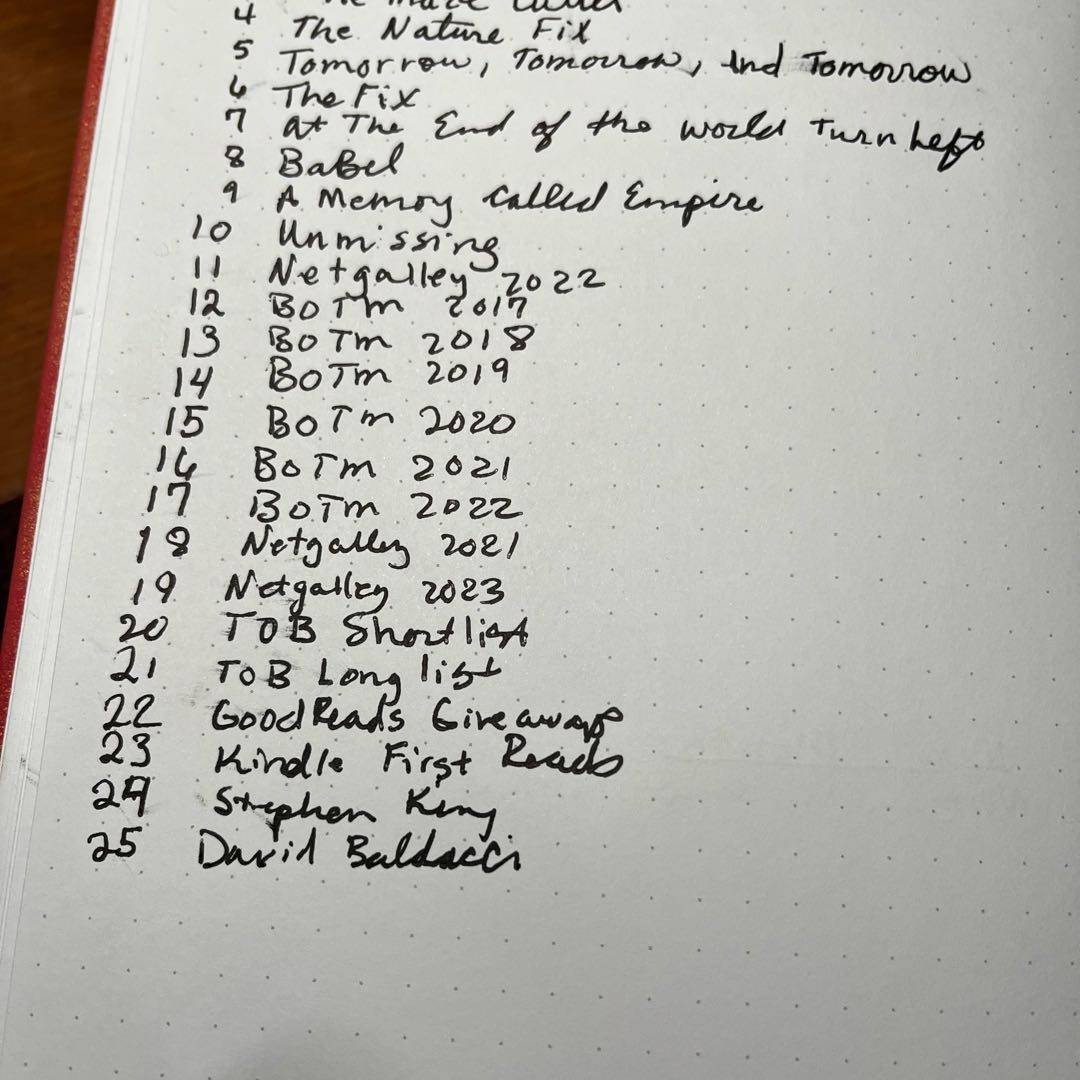 4
The Nature Fix
5 Tomorrow, Tomorrow, and Tomorrow
6 The Fix
7 at The End of the world Turn Left
8 BaBel
9 A Memory Called Empire
10 Unmissing
11 Netgalley 2022
12 BOTM 2017
13 BOTM 2018
14 BOTM 2019
15 BOTM 2020
16 BOTM 2021
17 BOTM 2022
18 Netgalley 2021
19 Netgalley 2023
20 TOB Shortlist
21 TOB Long list
22 GoodReads Giveaways
23 Kindle First Reads
24 Stephen King
25 David Baldacci